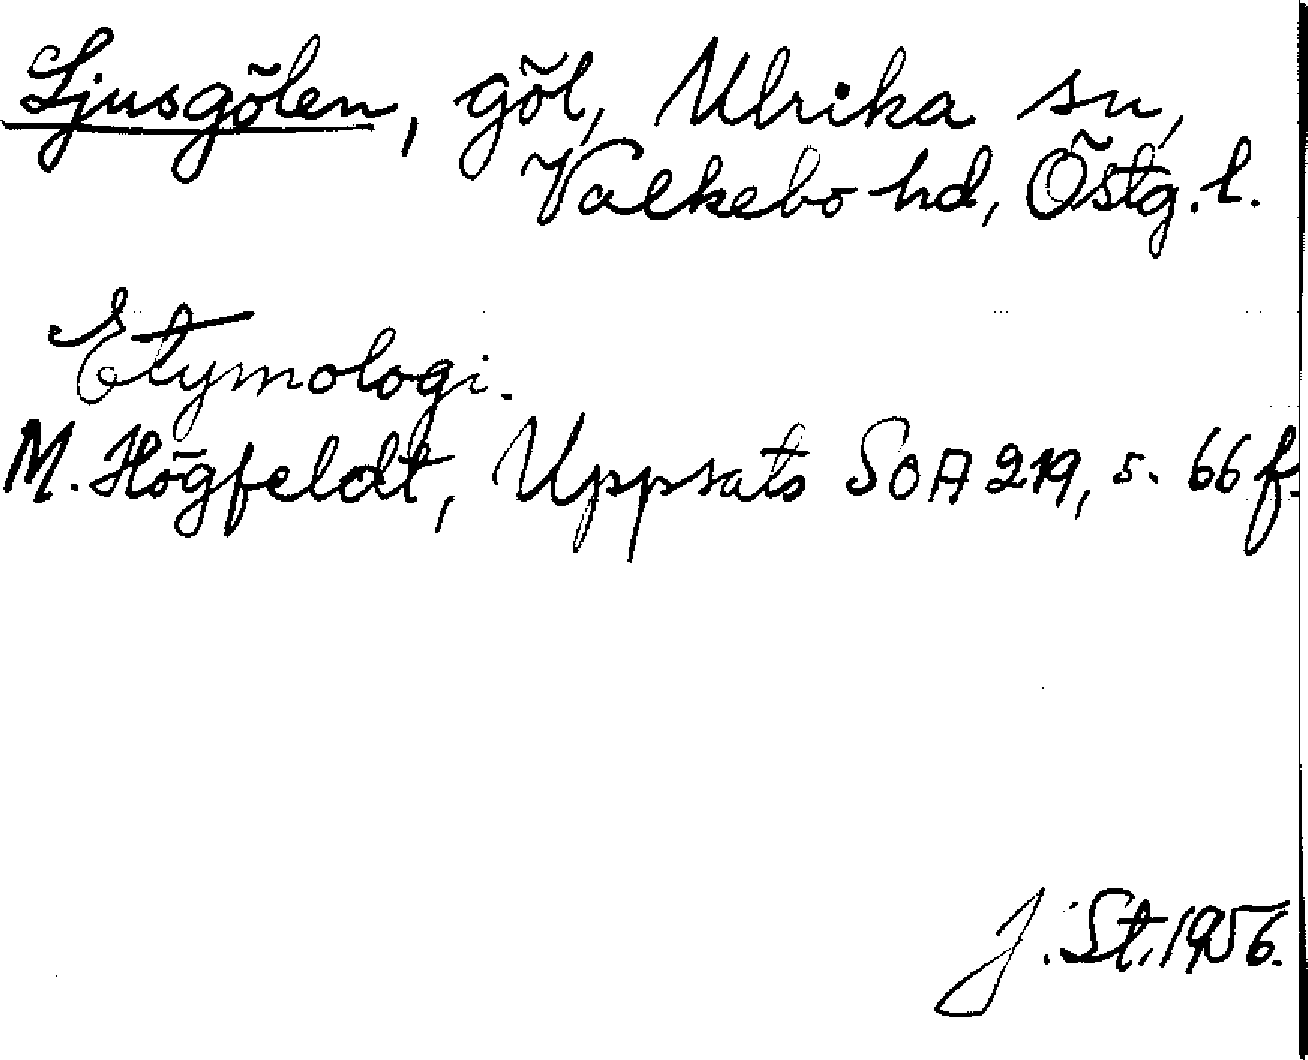 Ljusgölen, göl, Ulrika sn,
Valkebo hd, Östg. l.
Etymologi.
M. Högfeldt, Uppsats SOA 219, s. 66 f.
J. St. 1956.